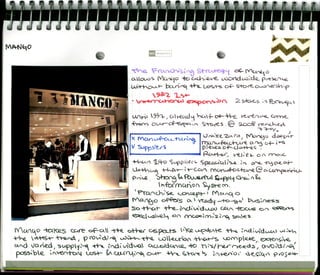 MANGO
The Franchising Strategy of Mango
allows Mango to achieve worldwide presence
without baring the costs of store ownership
1992 1st
International expansion
2 stores in Portugal
until 1997, already half of the revenue came
from out of Spain stores @ 2008 reached
MANGO
x Manufacturing
x Suppliers
Unlike Zara, Mango doesn't
manufacture any of its
pieces of clothes
Rather, relies on more
than 140 suppliers specialise in one type of
clothing that it can manufacture @ competitive
price
Strong & Powerful Supply Chain &
Information System.
'Franchise concept' Mango
Mango offers a 'ready-to-go' business
so that the individual can focus on efforts
exclusively on maximizing sales
Mango takes care of all the other aspects like update the individual with
the latest trend, providing with the collection that's complete, extensive,
and varied, supplying the individual accordance to his/her needs, avoiding
possible inventory cost & carrying out the store's interior design project